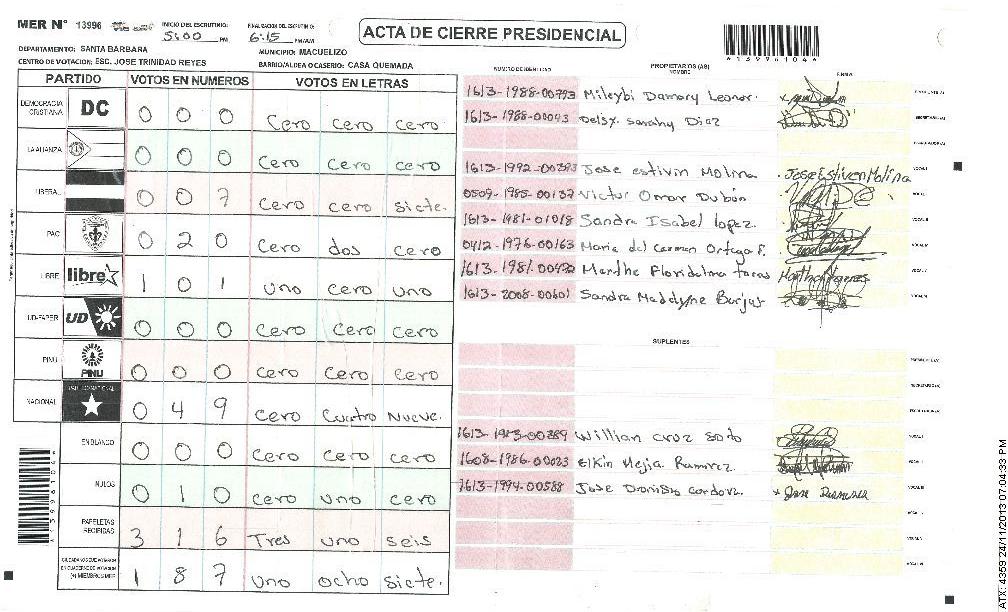 MER N° 13996
INICIO DEL ESCRUTINIO: 5:00 PM
FINALIZACION DEL ESCRUTINIO: 6:15 PM/AM
ACTA DE CIERRE PRESIDENCIAL
*13996104*
DEPARTAMENTO: SANTA BARBARA
MUNICIPIO: MACUELIZO
CENTRO DE VOTACION: ESC. JOSE TRINIDAD REYES
BARRIO/ALDEA O CASERIO: CASA QUEMADA
PARTIDO VOTOS EN NUMEROS VOTOS EN LETRAS
DEMOCRACIA CRISTIANA DC 0 0 0 Cero Cero Cero
LA ALIANZA 0 0 0 Cero Cero Cero
LIBERAL 0 0 7 Cero Cero Siete.
PAC 0 2 0 Cero dos Cero
LIBRE libre 1 0 1 uno Cero uno
UD-FAPER UD 0 0 0 Cero Cero Cero
PINU PINU 0 0 0 Cero Cero Cero
NACIONAL PARTIDO NACIONAL 0 4 9 Cero Cuatro Nueve.
EN BLANCO 0 0 0 Cero Cero Cero
NULOS 0 1 0 Cero uno Cero
PAPELETAS RECIBIDAS 3 1 6 Tres uno seis
1 8 7 uno ocho siete.
NUMERO DE IDENTIDAD PROPIETARIOS (AS) NOMBRE FIRMA
1613-1988-00793 Mileybi Damary Leonor.
1613-1988-00043 Deisy. Sarahy Diaz
1613-1992-00393 Jose estivin Molina Jose Estiven Molina
0509-1985-00137 Victor Omar Dubón
1613-1981-01018 Sandra Isabel lopez.
0412-1976-00163 Maria del Carmen Ortega F.
1613-1981-00472 Martha Floridelma
1613-2008-00601 Sandra Madelyne Borjas
SUPLENTES
1613-1983-00389 Willian Cruz Soto
1608-1986-00023 Elkin Mejia Ramirez.
1613-1994-00588 Jose Dionisio Cordova.
*13996104*
ATX: 4359 24/11/2013 07:04:33 PM